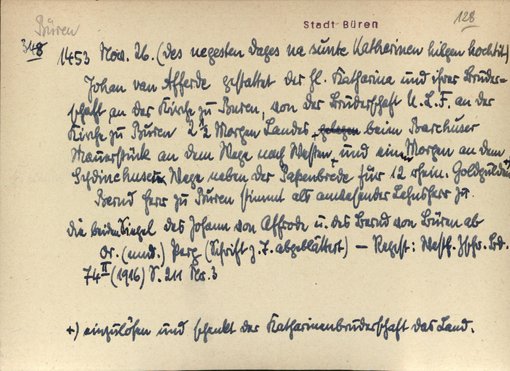 Büren
Stadt Büren
128
348
1453 Nov. 26. (des negesten dages na sunte Katharinen hilgen hochtit)
Johan van Afferde gestattet der hl. Katharina und ihrer Bruder-
schaft an der Kirche zu Buren, von der Bruderschaft U.L.F. an der
Kirche zu Büren 2 ½ Morgen Landes, gelegen beim Barchuser
Mauerstück an dem Wege nach Westen, und einen Morgen an dem
Wege neben der für 12 rhein. Goldgulden
Bernd Herr zu Büren stimmt als anwesender Lehnsherr zu.
die beiden Siegel des Johann von Afferde u. des Bernd von Büren ab
Or. (mnd.) Perg. (Schrift z. T. abgeblättert) — Regest: Westf. Zschr. Bd.
74 II (1916) S. 211 Nr. 3
+) einzulösen und schenkt der Katharinenbruderschaft das Land.